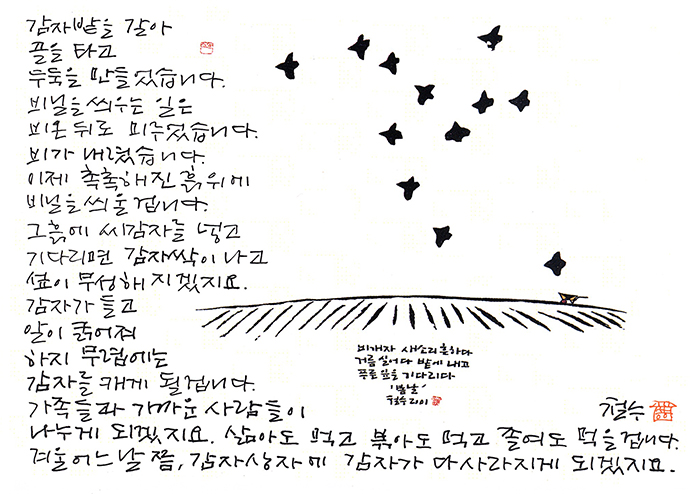 감자밭을 갈아
끌을 타고
두둑을 만들었습니다.
비닐을 씌우는 일은
비온 뒤로 미루었습니다.
비가 내렸습니다.
이제 촉촉해진 흙위에
비닐을 씌울겁니다.
그흙에 씨감자를 넣고
기다리면 감자싹이 나고
잎이 무성해지겠지요.
감자가 들고
알이 굵어져
하지 무렵에는
감자를 캐게 될겁니다.
가족들과 가까운 사람들이
나누게 되겠지요. 삶아도 먹고 볶아도 먹고 쪌여도 먹을겁니다.
겨울어느날쯤, 감자상자에 감자가 다사라지게 되겠지요.
비개자 새소리 흔하다
거름 실어다 밭에 내고
푸른 잎을 기다리다
'봄날'
철수